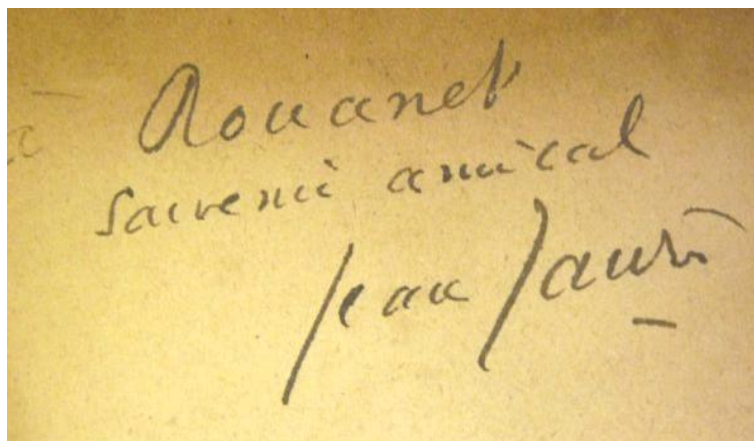 à Rouanet
souvenir amical
Jean Jaurès